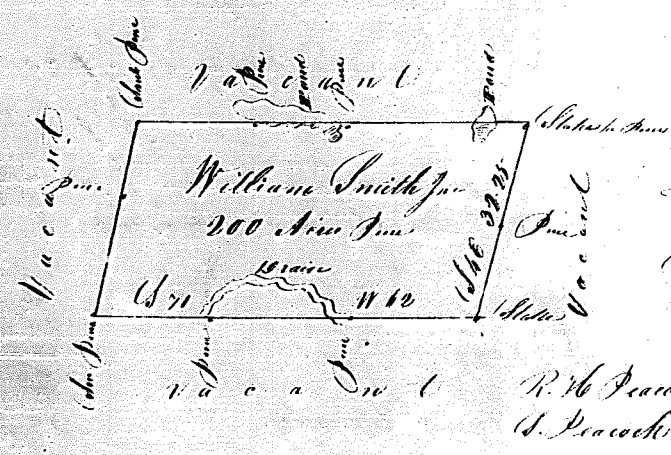 Pine Pond Pine Pond
Vacant
Pine
Stake in Pines
Vacant
Pine
William Smith Jnr
200 Acres Pine
Drain
S 71 W 62
32.25
Pine
Vacant
Stake
Pine
Pine Pine
Vacant
R. H Peaco
S. Peacock